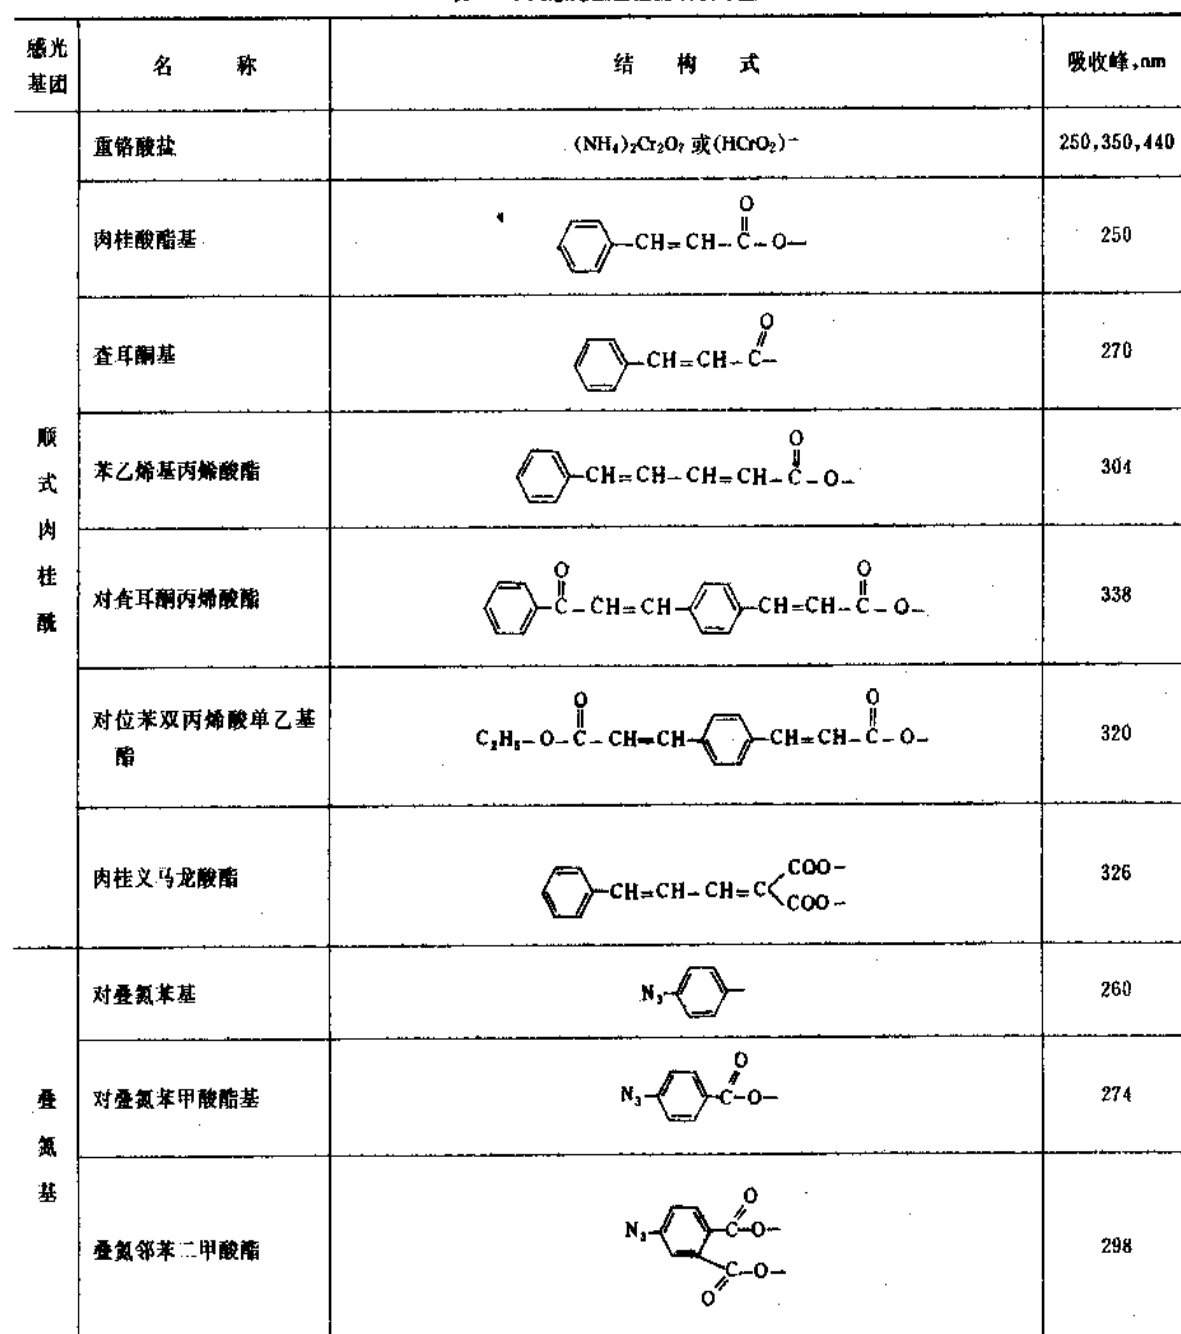 感光基团 名 称 结 构 式 吸收峰,nm
顺式肉桂酰
重铬酸盐 (NH₄)₂Cr₂O₇ 或(HCrO₂)⁻ 250,350,440
肉桂酸酯基 CH=CH-C(=O)-O- 250
查耳酮基 CH=CH-C(=O)- 270
苯乙烯基丙烯酸酯 CH=CH-CH=CH-C(=O)-O- 304
对查耳酮丙烯酸酯 C(=O)-CH=CH- -CH=CH-C(=O)-O- 338
对位苯双丙烯酸单乙基酯 C₂H₅-O-C(=O)-CH=CH- -CH=CH-C(=O)-O- 320
肉桂义马龙酸酯 CH=CH-CH=C COO- COO- 326
叠氮基
对叠氮苯基 N₃- 260
对叠氮苯甲酸酯基 N₃- -C(=O)-O- 274
叠氮邻苯二甲酸酯 N₃- -C(=O)-O- C(=O)-O- 298